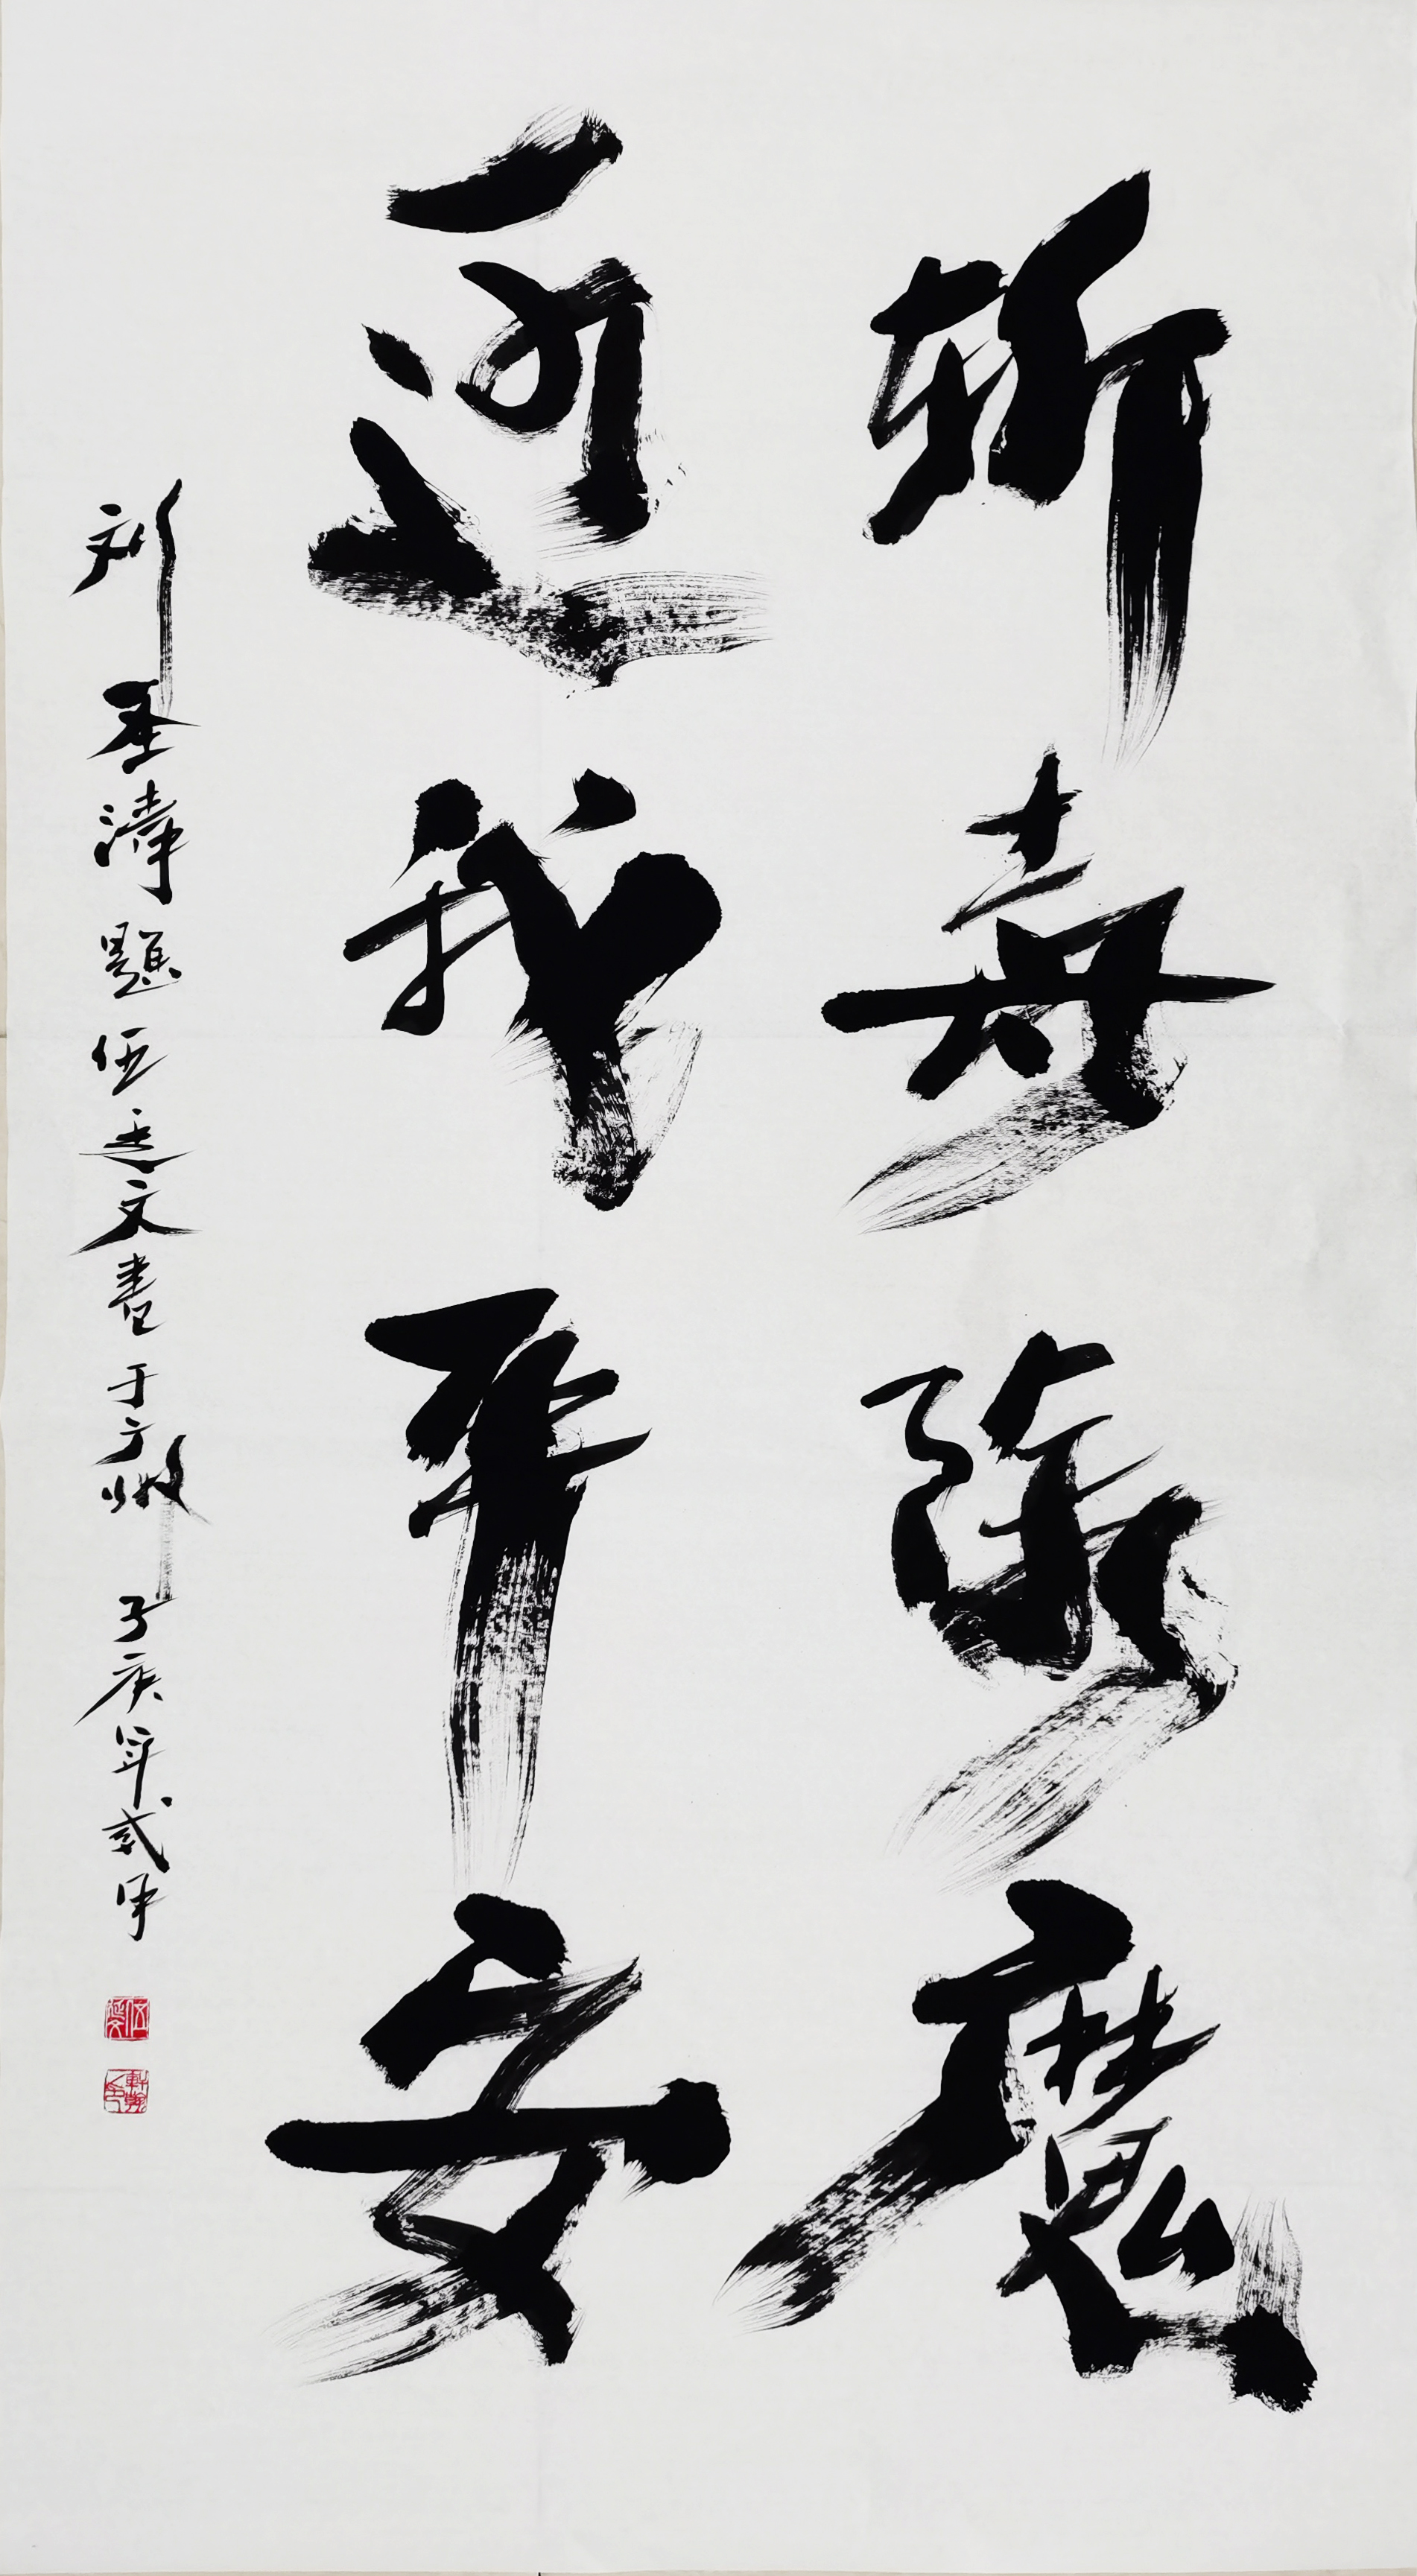 斩毒除魔
还我平安
刘圣涛题 伍延文书于方 子庚年贰月